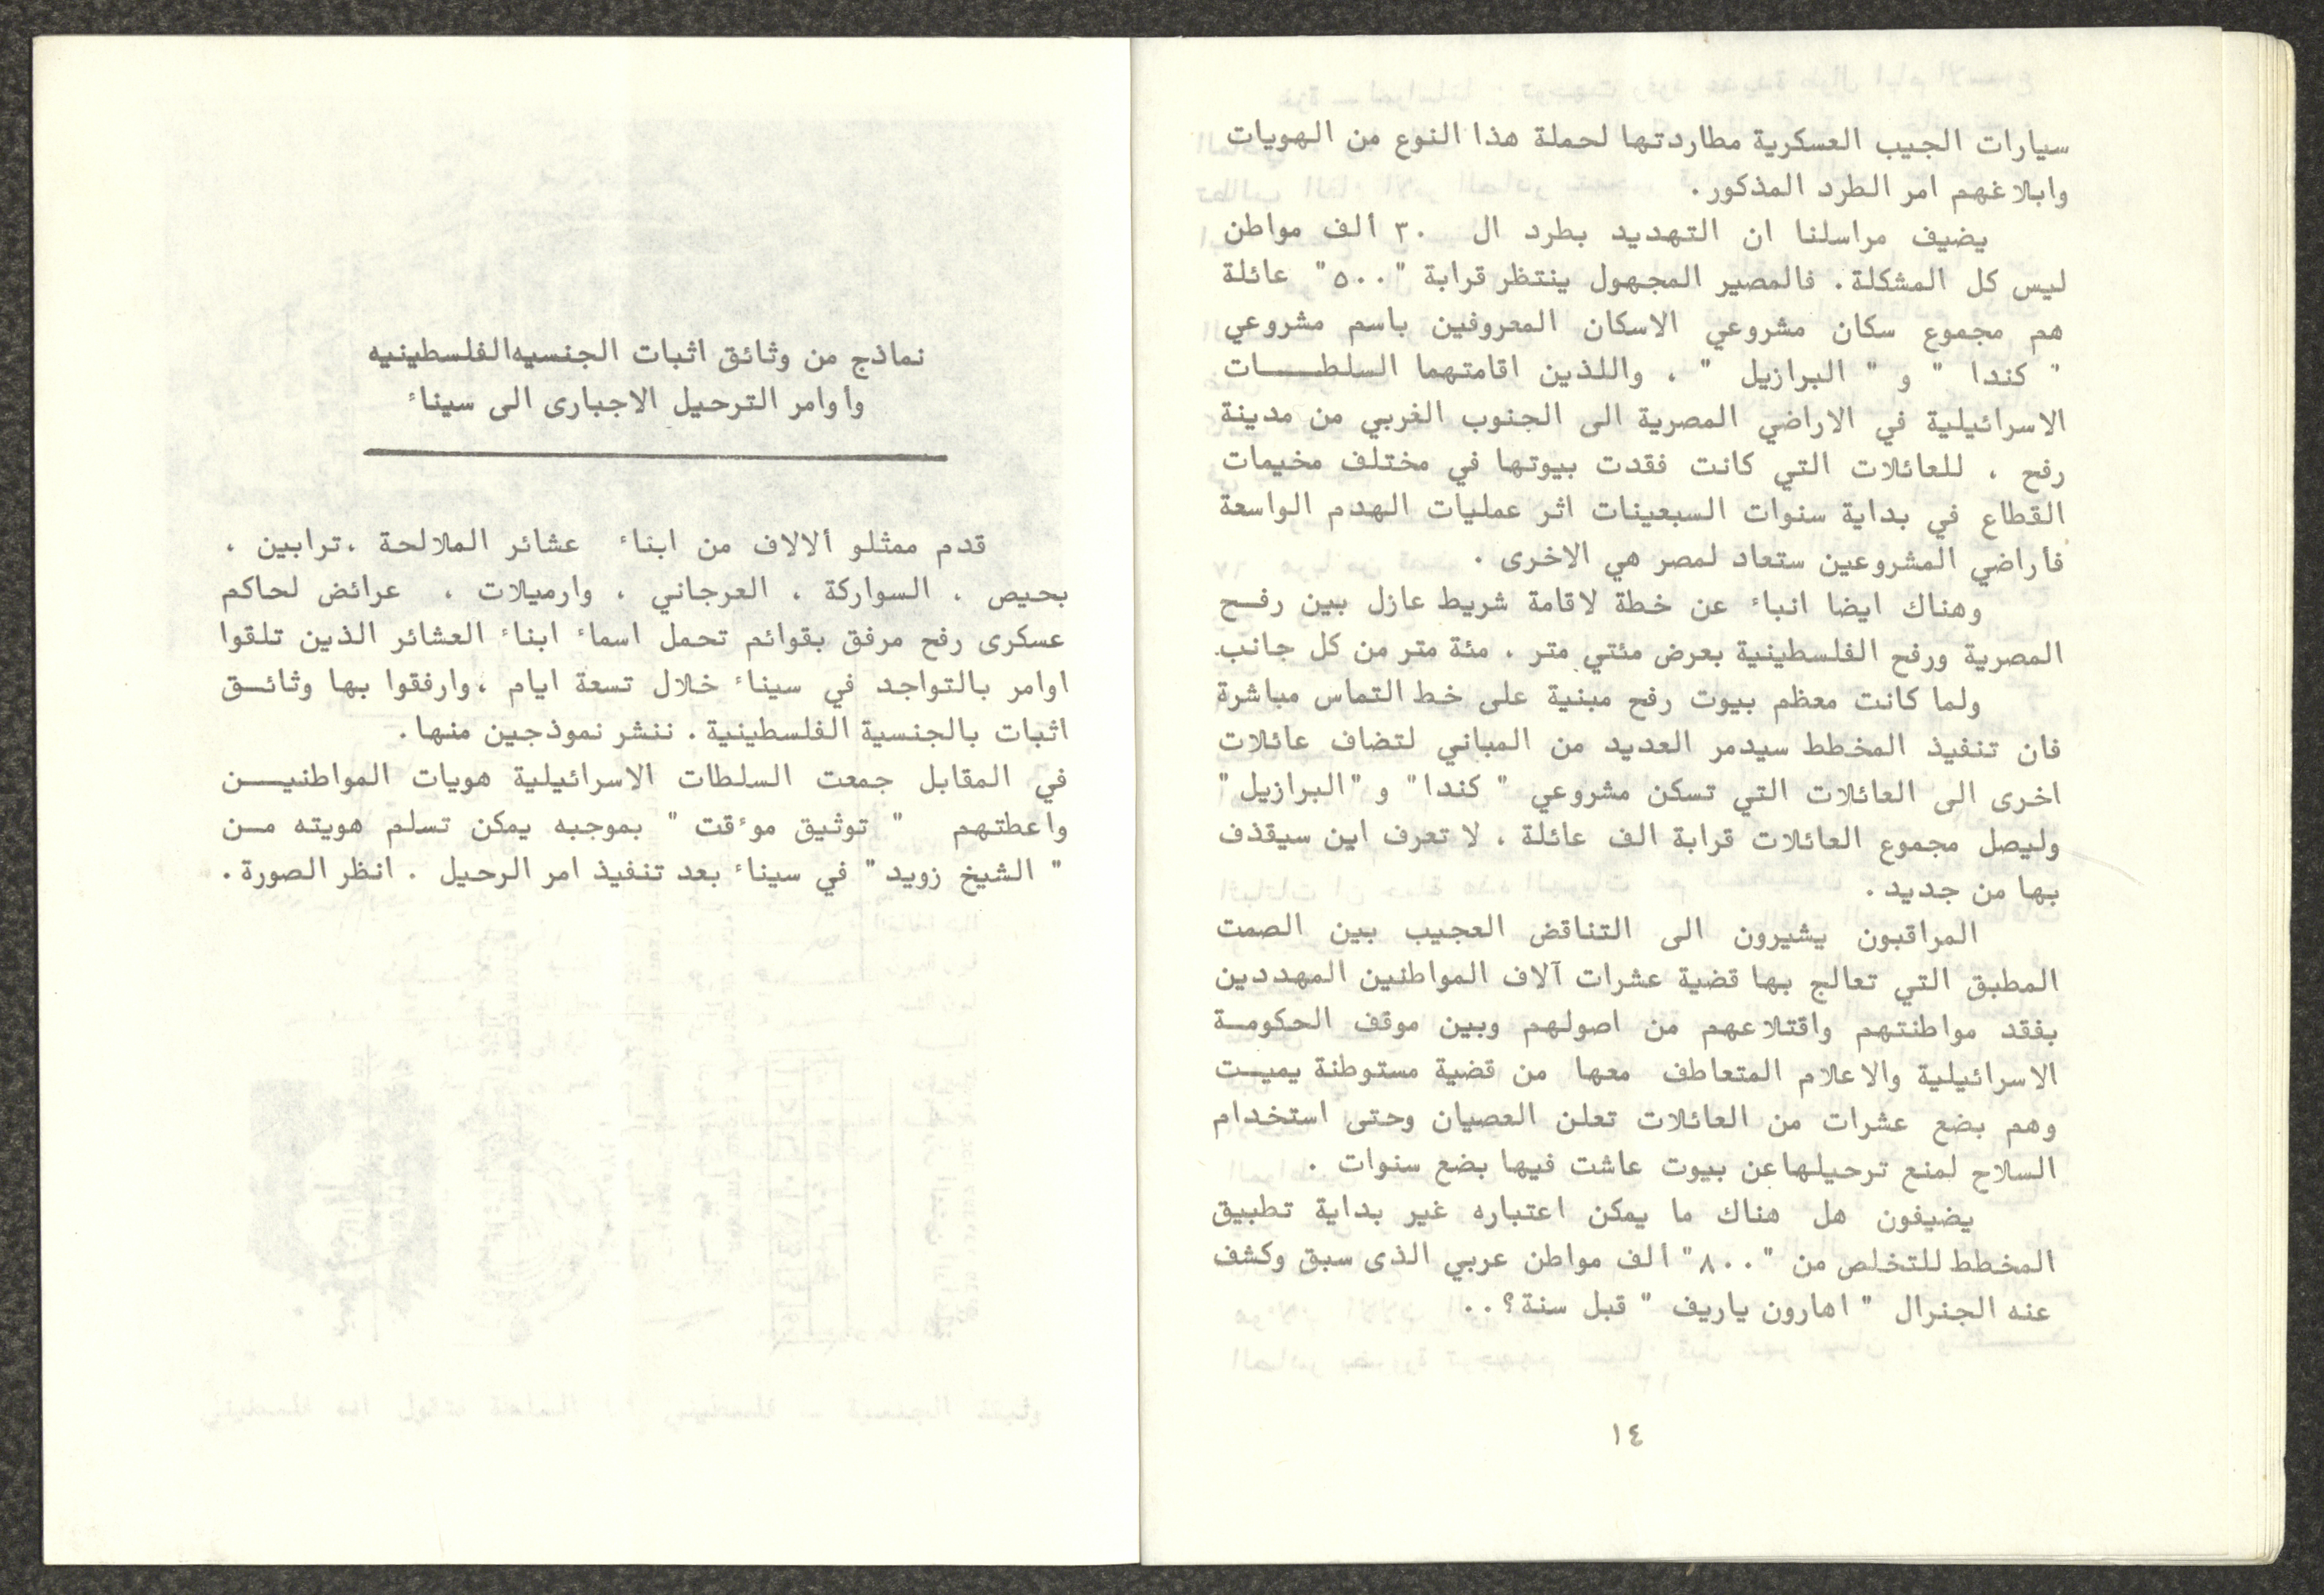 سيارات الجيب العسكرية مطاردتها لحملة هذا النوع من الهويات
وابلاغهم امر الطرد المذكور.
يضيف مراسلنا ان التهديد بطرد ال ٣٠ ألف مواطن
ليس كل المشكلة. فالمصير المجهول ينتظر قرابة "٥٠٠" عائلة
هم مجموع سكان مشروعي الاسكان المعروفين باسم مشروعي
" كندا " و " البرازيل " ، واللذين اقامتهما السلطات
الاسرائيلية في الاراضي المصرية الى الجنوب الغربي من مدينة
رفح ، للعائلات التي كانت فقدت بيوتها في مختلف مخيمات
القطاع في بداية سنوات السبعينات اثر عمليات الهدم الواسعة
فأراضي المشروعين ستعاد لمصر هي الاخرى .
وهناك ايضا انباء عن خطة لاقامة شريط عازل بين رفح
المصرية ورفح الفلسطينية بعرض مئتي متر ، مئة متر من كل جانب.
ولما كانت معظم بيوت رفح مبنية على خط التماس مباشرة
فان تنفيذ المخطط سيدمر العديد من المباني لتضاف عائلات
اخرى الى العائلات التي تسكن مشروعي " كندا" و "البرازيل"
وليصل مجموع العائلات قرابة الف عائلة ، لا تعرف اين سيقذف
بها من جديد.
المراقبون يشيرون الى التناقض العجيب بين الصمت
المطبق التي تعالج بها قضية عشرات آلاف المواطنين المهددين
بفقد مواطنتهم واقتلاعهم من اصولهم وبين موقف الحكومة
الاسرائيلية والاعلام المتعاطف معها من قضية مستوطنة يميت
وهم بضع عشرات من العائلات تعلن العصيان وحتى استخدام
السلاح لمنع ترحيلها عن بيوت عاشت فيها بضع سنوات .
يضيفون هل هناك ما يمكن اعتباره غير بداية تطبيق
المخطط للتخلص من "٨٠٠" ألف مواطن عربي الذى سبق وكشف
عنه الجنرال " اهارون ياريف " قبل سنة؟..
١٤
نماذج من وثائق اثبات الجنسيه الفلسطينيه
وأوامر الترحيل الاجبارى الى سيناء
قدم ممثلو ألالاف من ابناء عشائر الملالحة ،ترابين ،
بحيص ، السواركة ، العرجاني ، وارميلات ، عرائض لحاكم
عسكرى رفح مرفق بقوائم تحمل اسماء ابناء العشائر الذين تلقوا
اوامر بالتواجد في سيناء خلال تسعة ايام ،وارفقوا بها وثائق
اثبات بالجنسية الفلسطينية. ننشر نموذجين منها.
في المقابل جمعت السلطات الاسرائيلية هويات المواطنين
واعطتهم " توثيق موءقت " بموجبه يمكن تسلم هويته من
" الشيخ زويد" في سيناء بعد تنفيذ امر الرحيل . انظر الصورة.